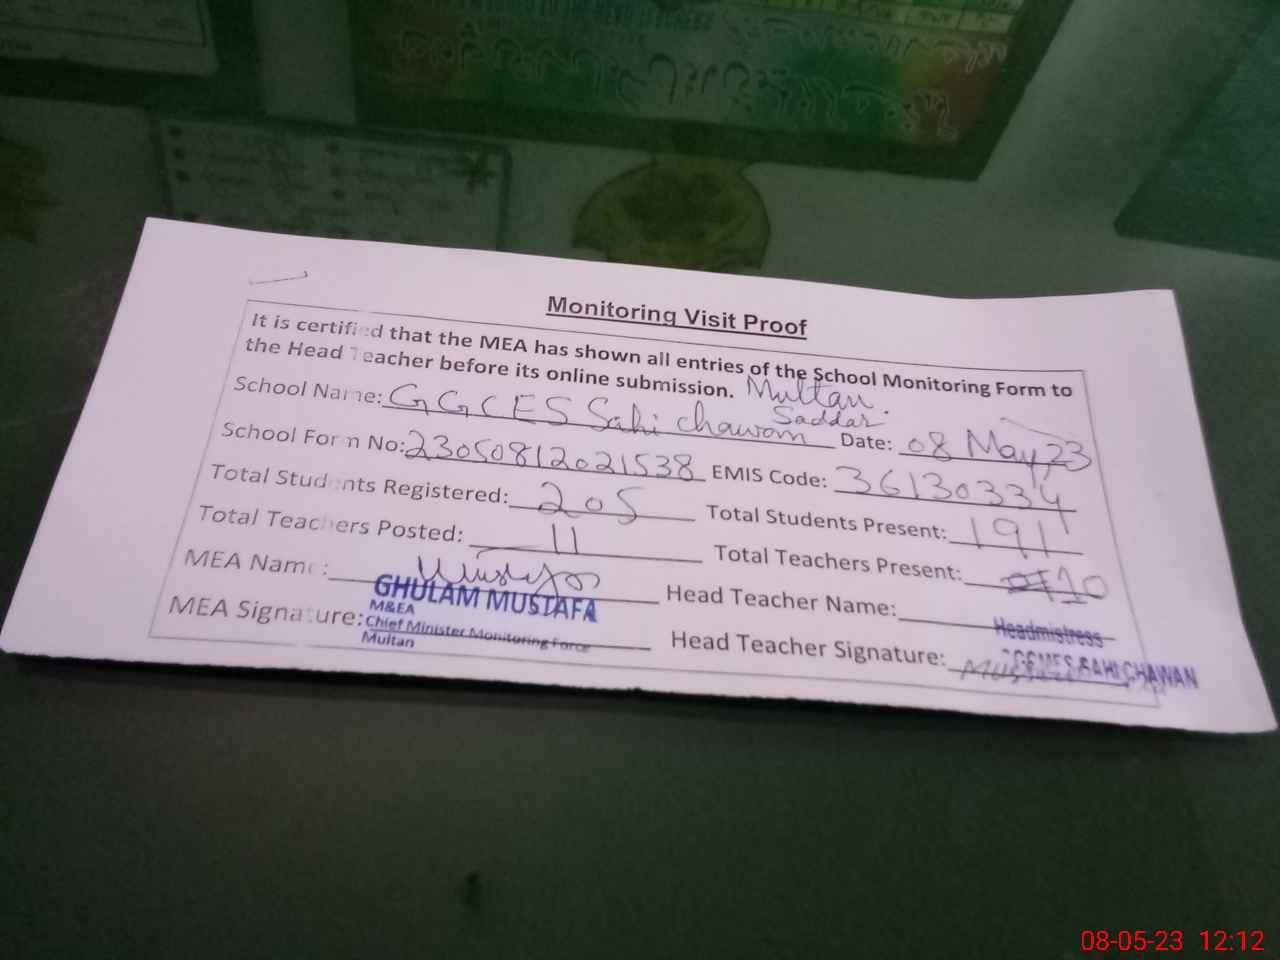 Monitoring Visit Proof
It is certified that the MEA has shown all entries of the School Monitoring Form to
the Head Teacher before its online submission. Multan.
Saddar
School Name: GGCES Sahi chawan Date: 08 May, 23
School Form No: 23050812021538 EMIS Code: 36130334
Total Students Registered: 205 Total Students Present: 191
Total Teachers Posted: 11 Total Teachers Present: 10
MEA Name: Mustafa Head Teacher Name:
GHULAM MUSTAFA
M&EA
MEA Signature: Chief Minister Monitoring Force
Multan
Head Teacher Signature:
Headmistress
SAHI CHAWAN
08-05-23 12:12